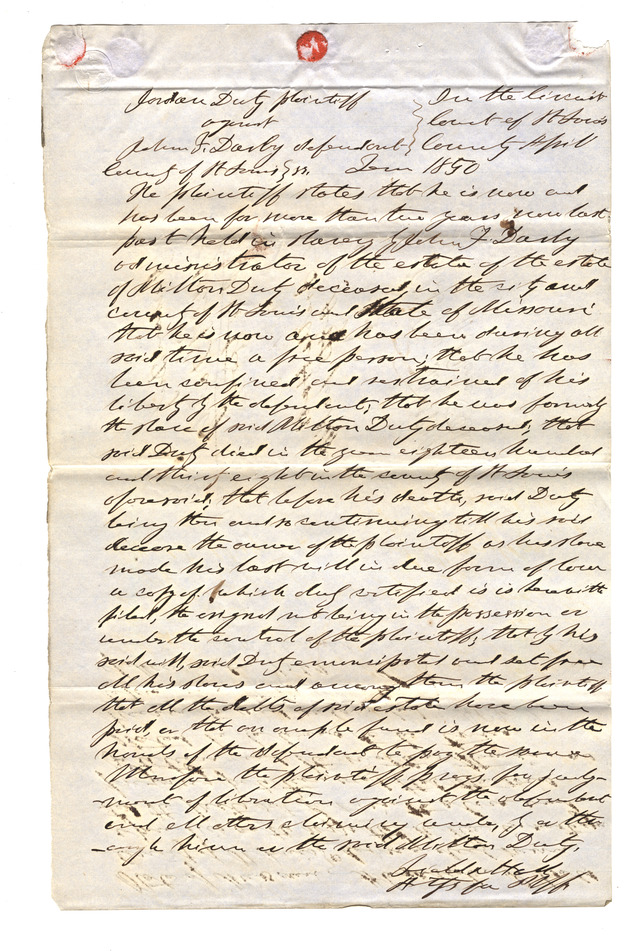 Jordan Duty plaintiff
against
John F. Darby defendant
In the Circuit
Court of St Louis
County April
County of St Louis ss. Term 1850
The plaintiff states that he is now and
has been for more than two years now last
past held in slavery by John F Darby
administrator of the estate of the estate
of Milton Duty deceased, in the city and
county of St Louis and State of Missouri
that he is now and has been during all
said time a free person; that he has
been confined and restrained of his
liberty by the defendant; that he was formerly
the slave of said Milton Duty deceased; that
said Duty died in the year eighteen hundred
and thirty eight in the county of St Louis
aforesaid, that before his death, said Duty
being then and so continuing till his said
decease the owner of the plaintiff as his slave
made his last will in due form of law
a copy of which duly certified is is herewith
filed, the original not being in the possession or
under the control of the plaintiff; that by his
said will, said Duty emancipated and set free
all his slaves and among them the plaintiff
that all the debts of said estate have been
paid, or that an ample fund is now in the
hands of the defendant to pay the same
Wherefore the plaintiff prays for judg-
-ment of liberation against the defendant
and all others claiming under, by or thr-
-ough him or the said Milton Duty,
Attys for Plff